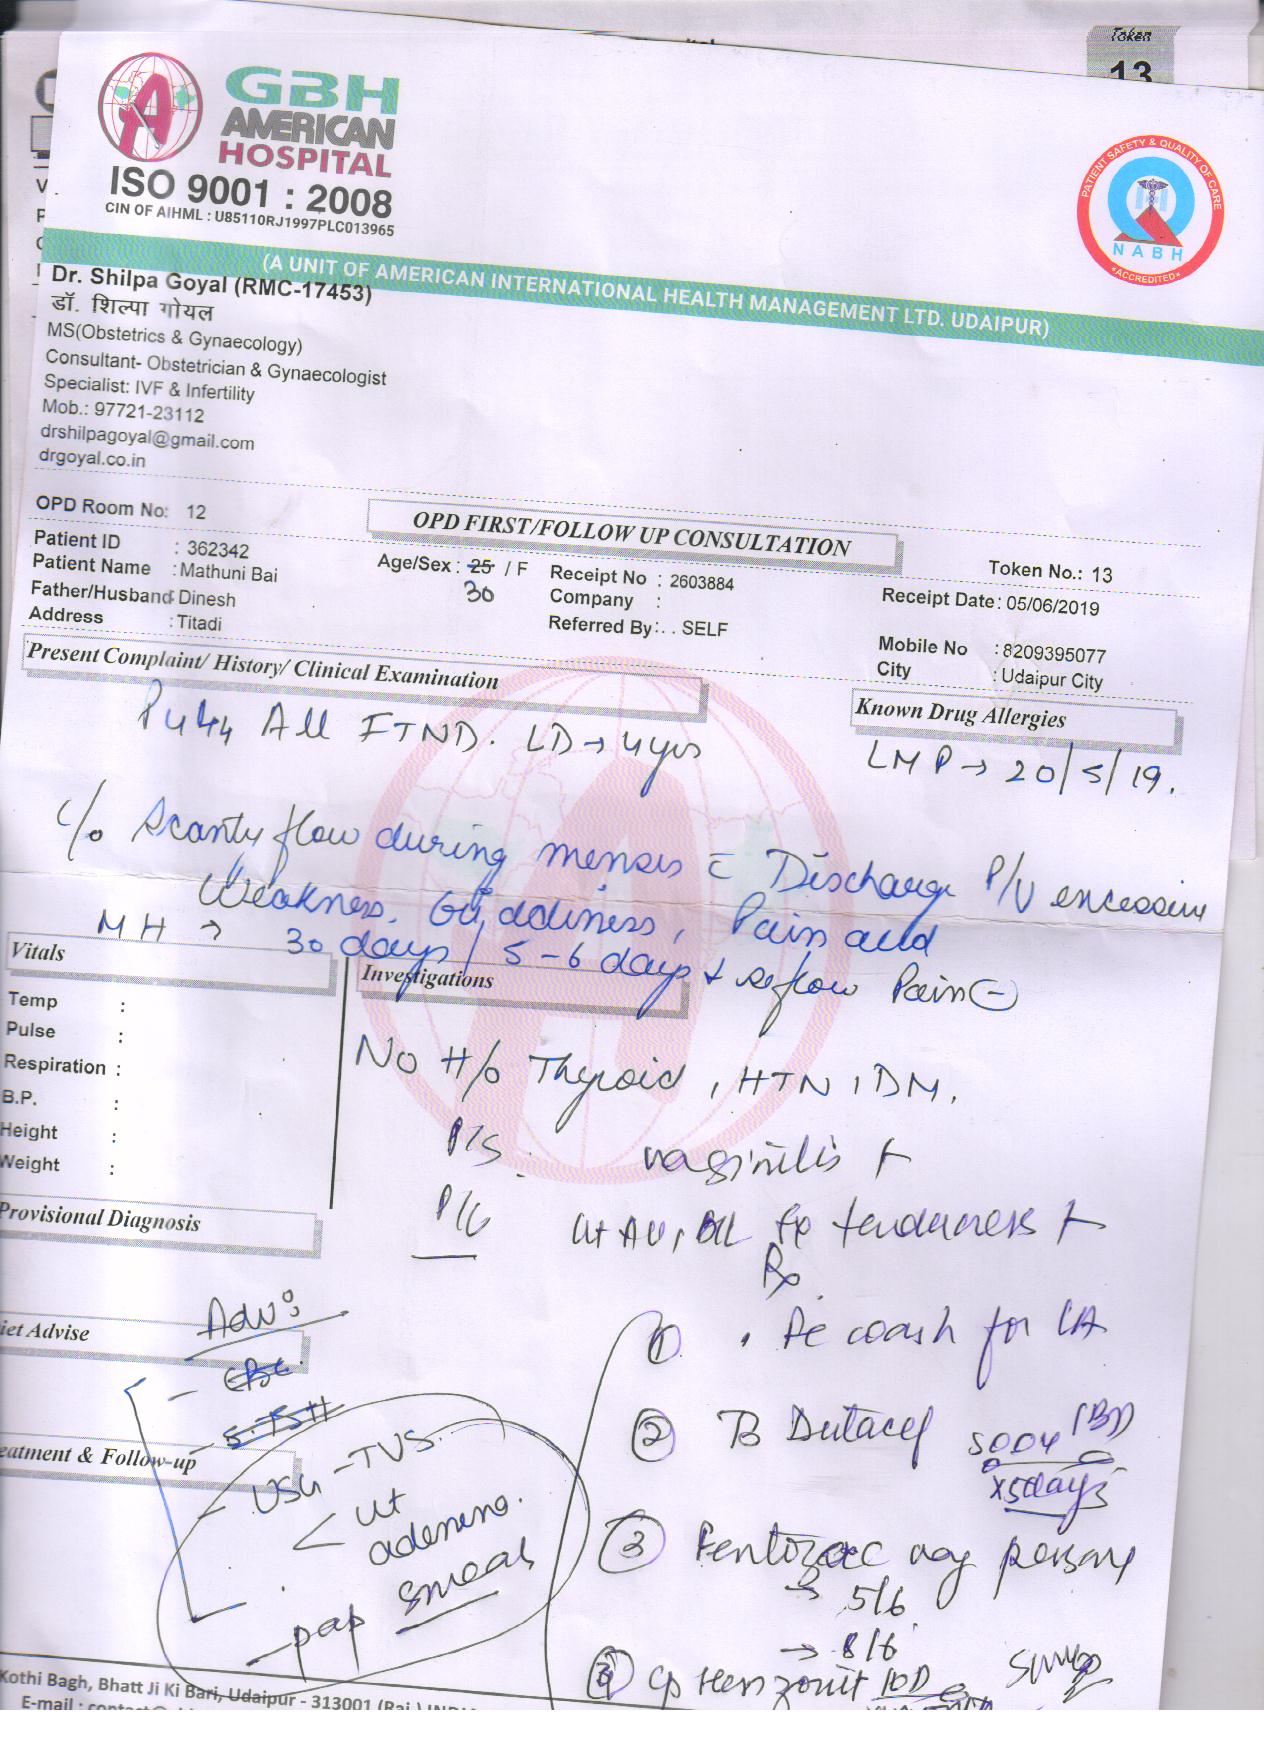 Token
13
GBH
AMERICAN
HOSPITAL
ISO 9001 : 2008
CIN OF AIHML : U85110RJ1997PLC013965
PATIENT SAFETY & QUALITY OF CARE
NABH
*ACCREDITED*
(A UNIT OF AMERICAN INTERNATIONAL HEALTH MANAGEMENT LTD. UDAIPUR)
Dr. Shilpa Goyal (RMC-17453)
डॉ. शिल्पा गोयल
MS(Obstetrics & Gynaecology)
Consultant- Obstetrician & Gynaecologist
Specialist: IVF & Infertility
Mob.: 97721-23112
drshilpagoyal@gmail.com
drgoyal.co.in
OPD Room No: 12
OPD FIRST/FOLLOW UP CONSULTATION
Token No.: 13
Patient ID : 362342
Patient Name : Mathuni Bai
Father/Husband : Dinesh
Address : Titadi
Age/Sex : 25 / F
30
Receipt No : 2603884
Company :
Referred By : . . SELF
Receipt Date : 05/06/2019
Mobile No : 8209395077
City : Udaipur City
Present Complaint/ History/ Clinical Examination
Known Drug Allergies
All FTND. LD → 4yrs
LMP → 20/5/19.
c/o Scanty flow during menses c Discharge P/V
Weakness, Pain
MH → 30 days / 5-6 days + Pain
Vitals
Investigations
Temp :
Pulse :
Respiration :
B.P. :
Height :
Weight :
No H/o Thyroid, HTN, DM.
P/S. vaginitis +
P/V Ut AV, tenderness +
Provisional Diagnosis
Rx
Adv:
iet Advise
- CBC
- S.TSH
eatment & Follow-up
- USG - TVS
< Ut
- pap smear
① for LA
② (BD)
x5days
③
→ 5/6
→ 8/6
④ 10D
Kothi Bagh, Bhatt Ji Ki Bari, Udaipur - 313001 (Raj.)
E-mail :